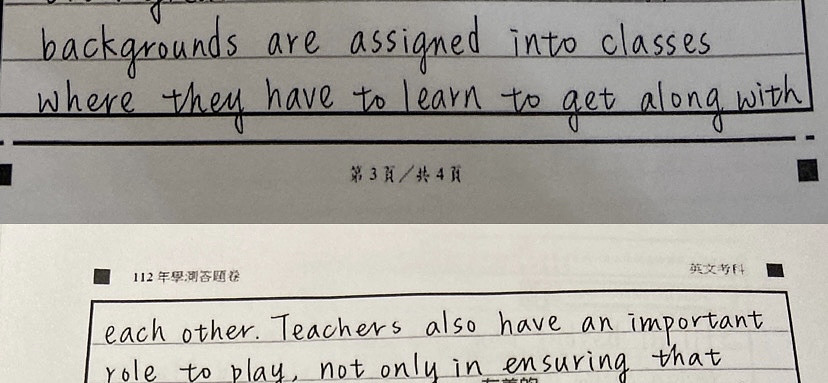 backgrounds are assigned into classes
where they have to learn to get along with
第 3 頁／共 4 頁
112 年學測答題卷
英文考科
each other. Teachers also have an important
role to play, not only in ensuring that